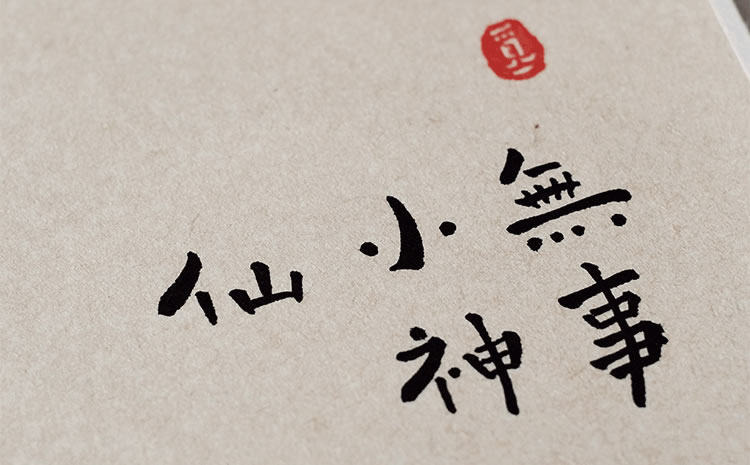 無事
小神
仙